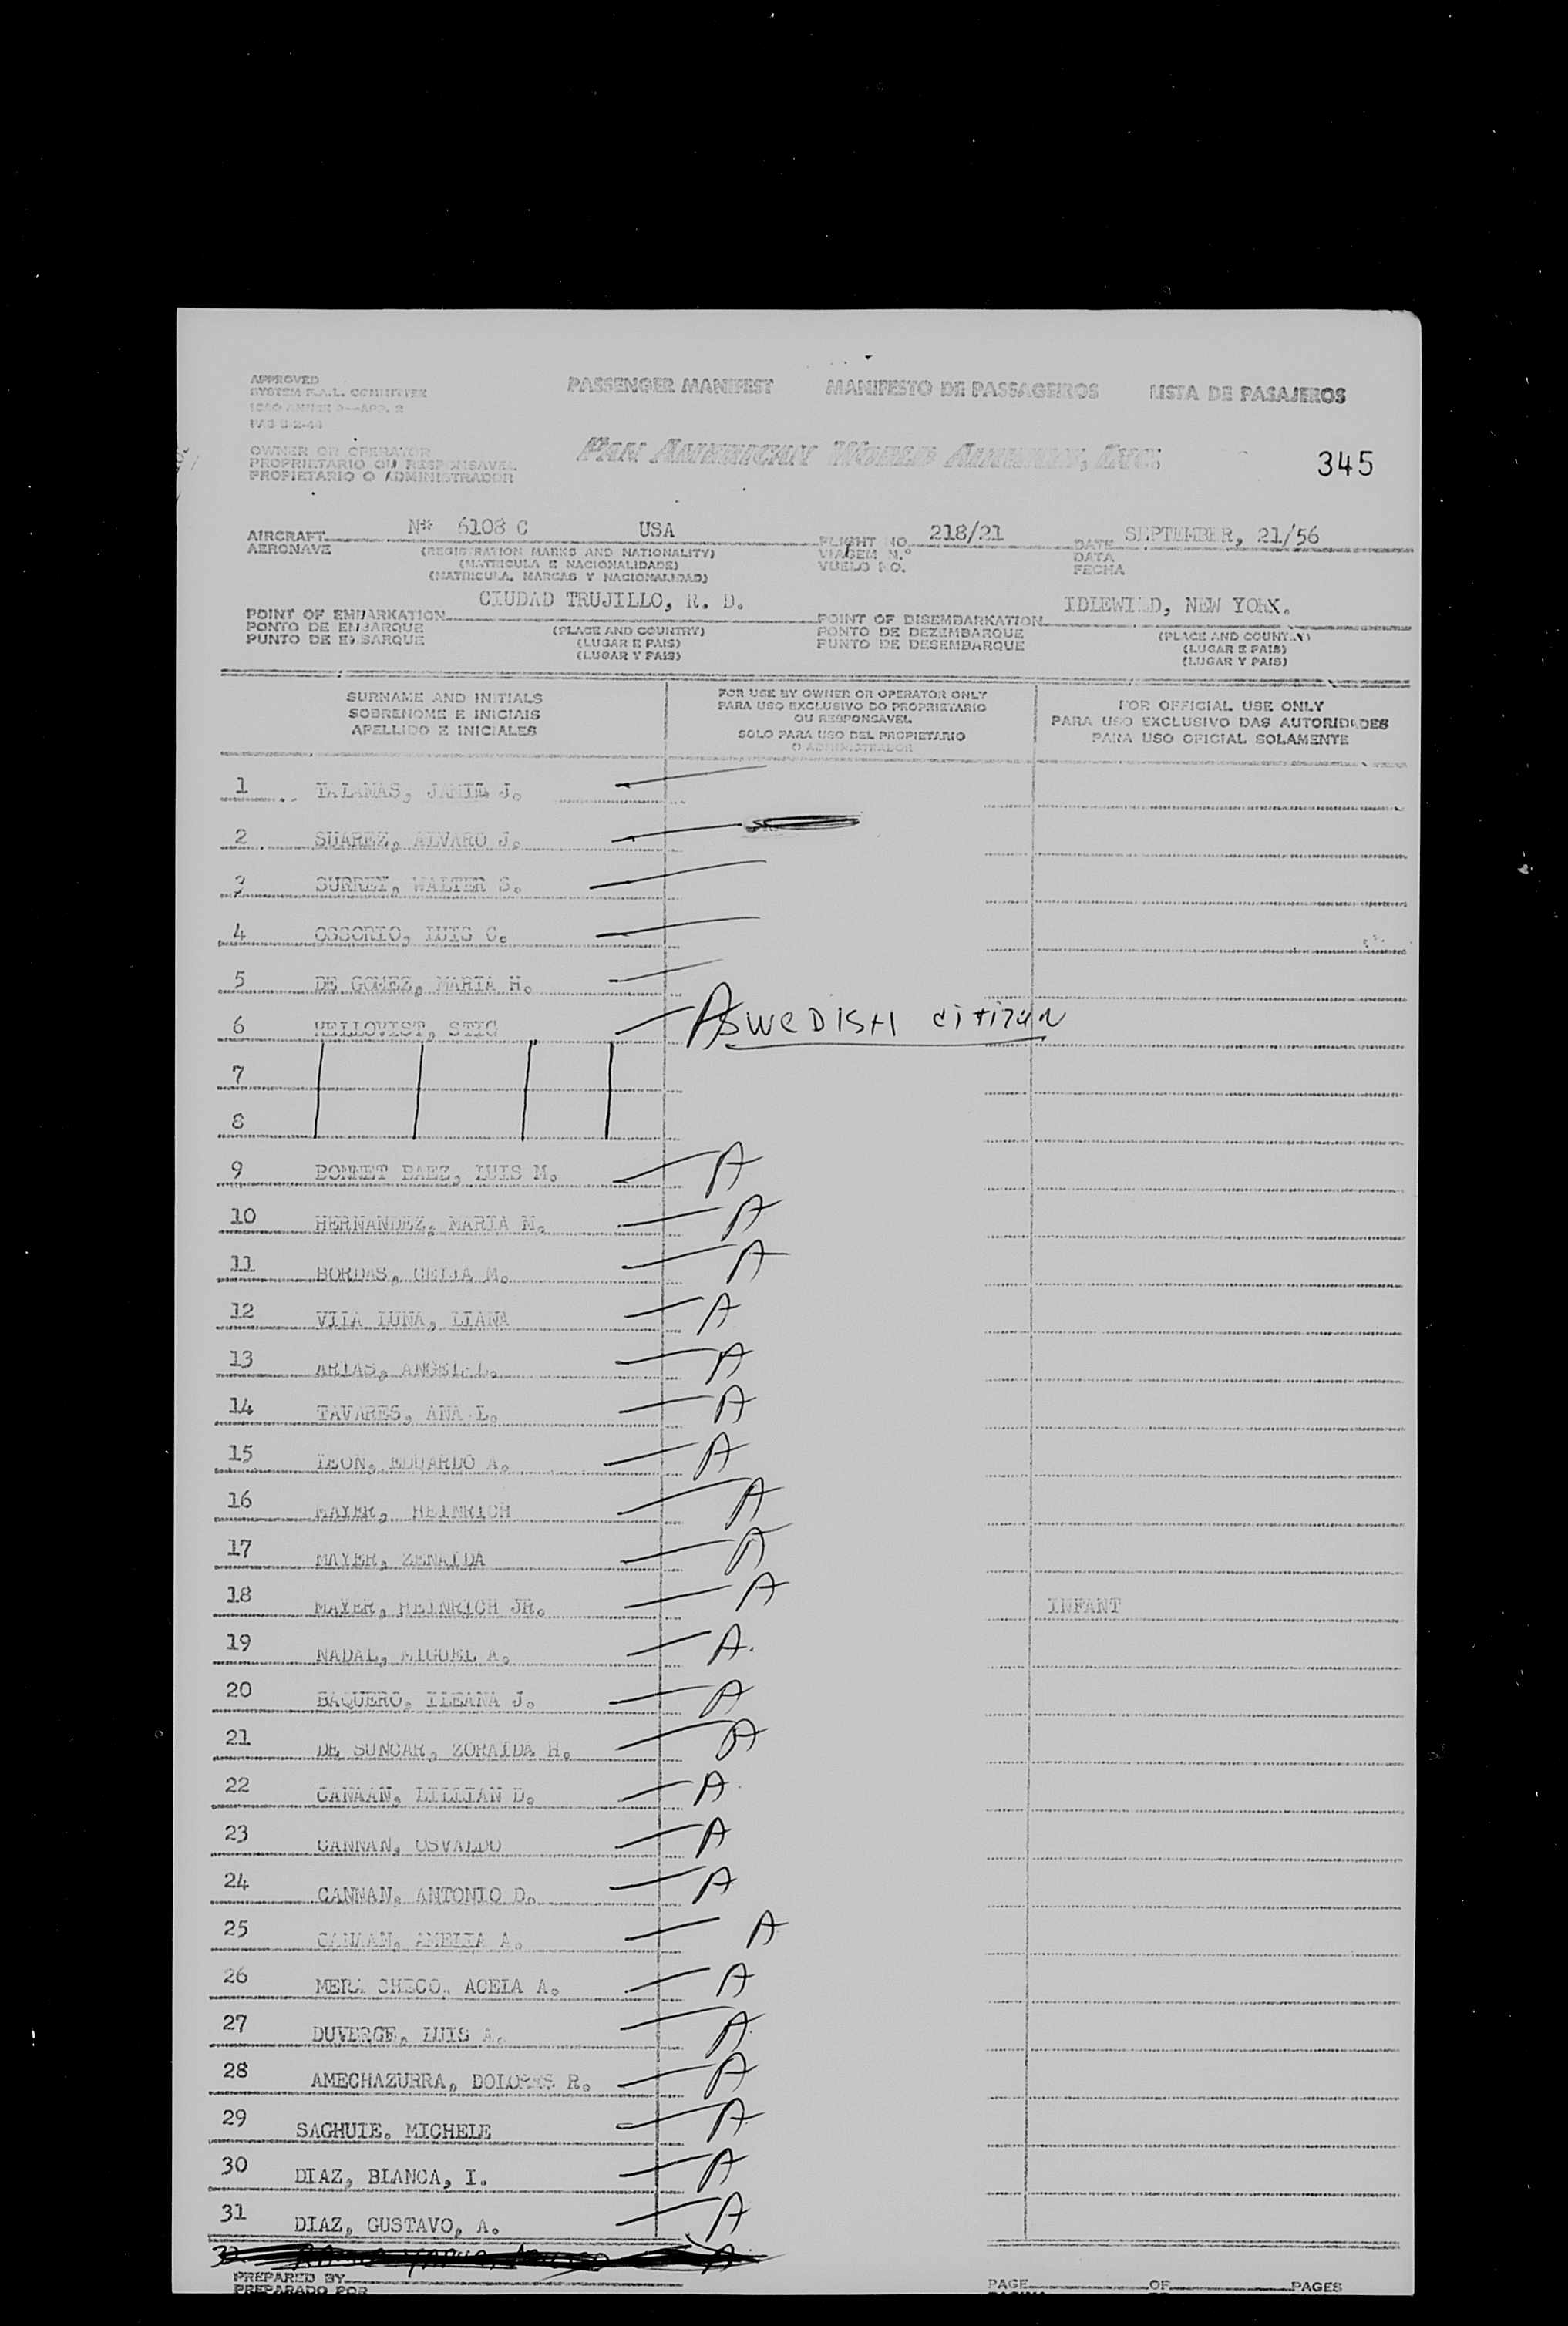 APPROVED
SYSTEM F.A.L. COMMITTEE
PASSENGER MANIFEST MANIFESTO DE PASSAGEIROS LISTA DE PASAJEROS
OWNER OR OPERATOR
PROPRIETARIO OU RESPONSAVEL
PROPIETARIO O ADMINISTRADOR
PAN AMERICAN WORLD AIRWAYS, INC.
345
AIRCRAFT N# 6108 C USA FLIGHT NO. 218/21 DATE SEPTEMBER, 21/56
AERONAVE (REGISTRATION MARKS AND NATIONALITY) VIAGEM N.º DATA
(MATRICULA E NACIONALIDADE) VUELO NO. FECHA
(MATRICULA, MARCAS Y NACIONALIDAD)
POINT OF EMBARKATION CIUDAD TRUJILLO, R. D. POINT OF DISEMBARKATION IDLEWILD, NEW YORK.
PONTO DE EMBARQUE (PLACE AND COUNTRY) PONTO DE DEZEMBARQUE (PLACE AND COUNTRY)
PUNTO DE EMBARQUE (LUGAR E PAIS) PUNTO DE DESEMBARQUE (LUGAR E PAIS)
(LUGAR Y PAIS) (LUGAR Y PAIS)
SURNAME AND INITIALS
SOBRENOME E INICIAIS
APELLIDO E INICIALES
FOR USE BY OWNER OR OPERATOR ONLY
PARA USO EXCLUSIVO DO PROPRIETARIO
OU RESPONSAVEL
SOLO PARA USO DEL PROPIETARIO
O ADMINISTRADOR
FOR OFFICIAL USE ONLY
PARA USO EXCLUSIVO DAS AUTORIDADES
PARA USO OFICIAL SOLAMENTE
1 TALAMAS, JAMIL J.
2 SUAREZ, ALVARO J.
3 SURREY, WALTER S.
4 OSSORIO, LUIS C.
5 DE GOMEZ, MARIA H.
6 HELLQVIST, STIG A SWEDISH citizen
7
8
9 BONNET BAEZ, LUIS M. A
10 HERNANDEZ, MARIA M. A
11 BORDAS, CELIA M. A
12 VILA LUNA, LIANA A
13 ARIAS, ANGEL L. A
14 TAVARES, ANA L. A
15 LEON, EDUARDO A. A
16 MAYER, HEINRICH A
17 MAYER, ZENAIDA A
18 MAYER, HEINRICH JR. A INFANT
19 NADAL, MIGUEL A. A
20 BAQUERO, ILEANA J. A
21 DE SUNCAR, ZORAIDA H. A
22 CANAAN, LILLIAN D. A
23 CANNAN, OSVALDO A
24 CANNAN, ANTONIO D. A
25 CANAAN, AMELIA A. A
26 MERA CHECO, ACELA A. A
27 DUVERGE, LUIS A. A
28 AMECHAZURRA, DOLORES R. A
29 SAGHUIE. MICHELE A
30 DIAZ, BLANCA, I. A
31 DIAZ, GUSTAVO, A. A
PREPARED BY
PREPARADO POR
PAGE OF PAGES